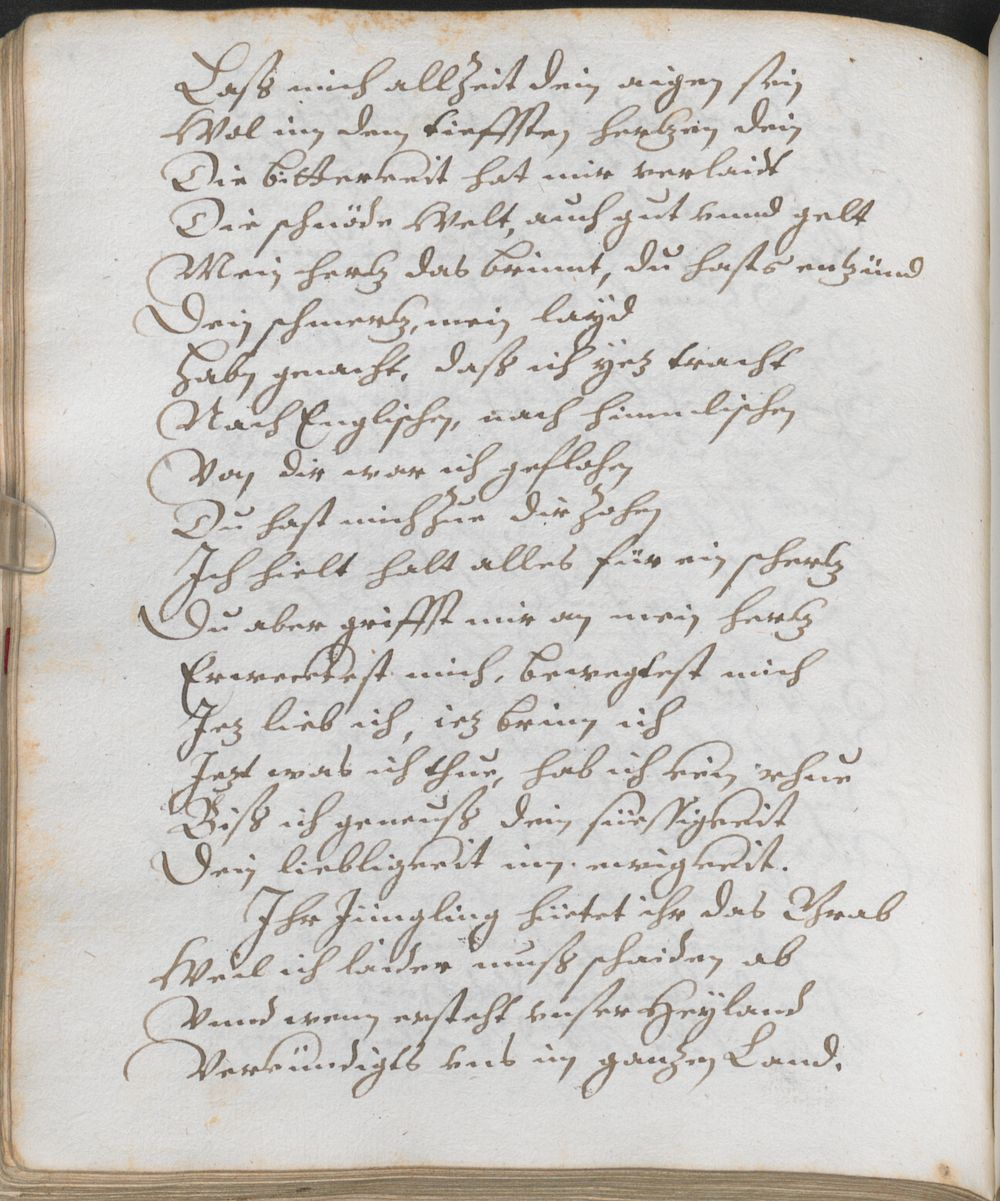 Laß mich allzeit dein aigen sein
Wol inn dem tieffsten hertzen dein
Die bitterkeit hat mir verlaidt
Die schnöde Welt, auch gut vnnd gelt
Mein hertz das brinnt, du hasts entzünd
Dein schmertz, mein layd
Habn gemacht, daß ich yetz tracht
Nach Englischen, nach himmlischen
Von dir war ich geflohen
Du hast mich zue dir zohen
Ich hielt halt alles für ein schertz
Du aber griffst mir an mein hertz
Erwecktest mich, bewegtest mich
Jez lieb ich, iez brinn ich
Jezt was ich thue, hab ich kein rhue
Biß ich geneuß dein süessigkeit
Dein liebligkeit inn ewigkeit.
Ihr Jüngling hüetet ihr das Grab
Weil ich laider muß schaiden ab
Vnnd wenn ersteht vnser Heyland
Verkündigts vns im gantzen Land.